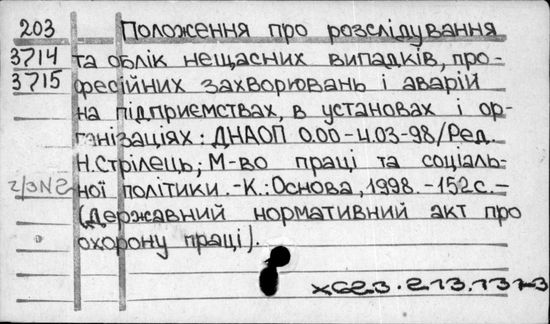 203 Положення про розслідування
3714 та облік нещасних випадків, про-
3715 фесійних захворювань і аварій
на підприємствах, в установах і ор-
ганізаціях: ДНАОП 0.00-4.03-98/Ред.
Н.Стрілець; М-во праці та соціаль-
ної політики.-К.: Основа, 1998.-152с.-
(Державний нормативний акт про
охорону праці).